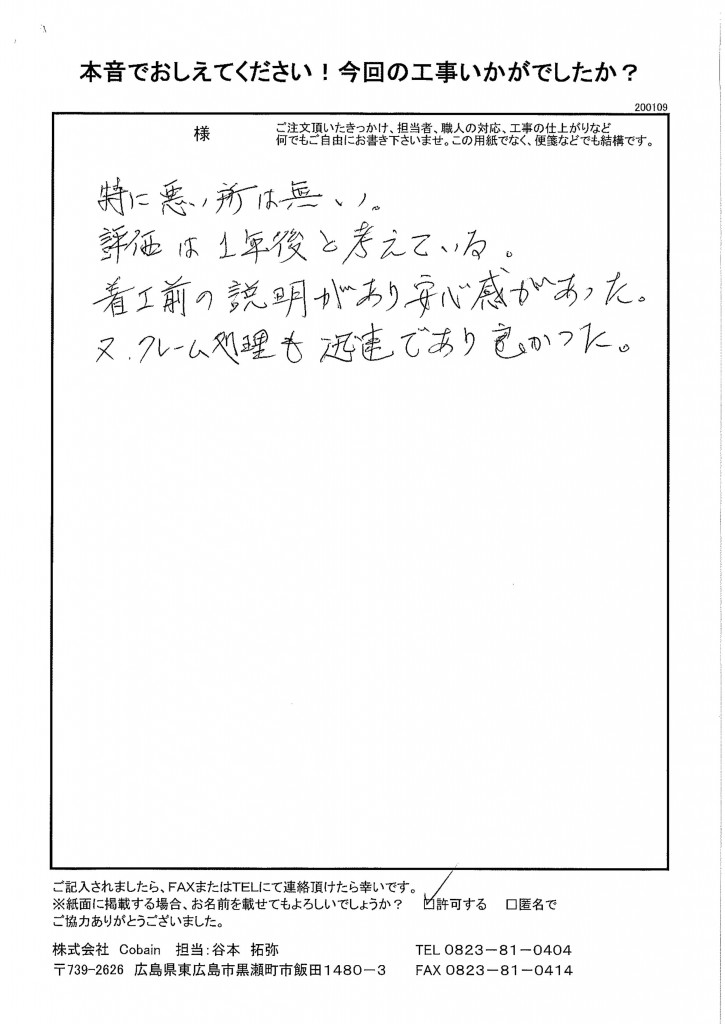 本音でおしえてください！今回の工事いかがでしたか？
200109
様
ご注文頂いたきっかけ、担当者、職人の対応、工事の仕上がりなど
何でもご自由にお書き下さいませ。この用紙でなく、便箋などでも結構です。
特に悪い所は無い。
評価は1年後と考えている。
着工前の説明があり安心感があった。
又、クレーム処理も迅速であり良かった。
ご記入されましたら、FAXまたはTELにて連絡頂けたら幸いです。
※紙面に掲載する場合、お名前を載せてもよろしいでしょうか？ ☑許可する □匿名で
ご協力ありがとうございました。
株式会社 Cobain 担当：谷本 拓弥 TEL 0823－81－0404
〒739-2626 広島県東広島市黒瀬町市飯田1480－3 FAX 0823－81－0414